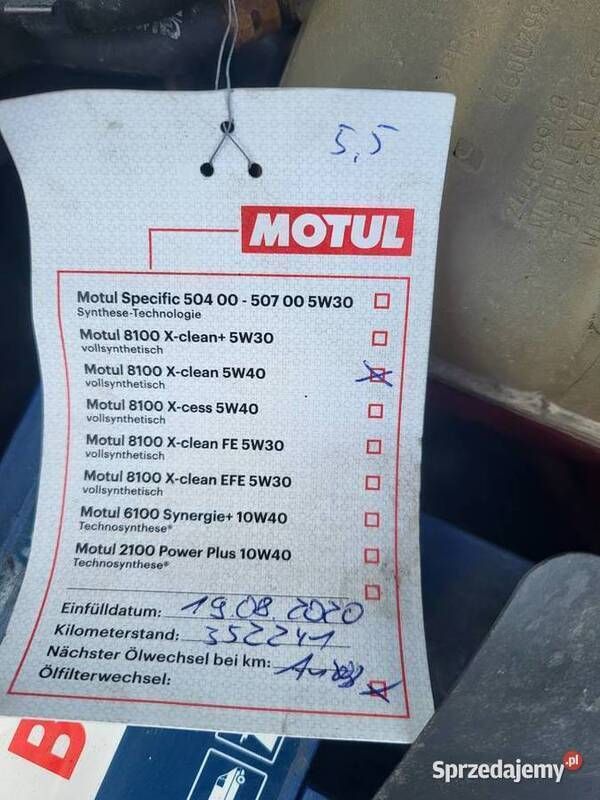 5,5
MOTUL
Motul Specific 504 00 - 507 00 5W30
Synthese-Technologie
Motul 8100 X-clean+ 5W30
vollsynthetisch
Motul 8100 X-clean 5W40
vollsynthetisch
Motul 8100 X-cess 5W40
vollsynthetisch
Motul 8100 X-clean FE 5W30
vollsynthetisch
Motul 8100 X-clean EFE 5W30
vollsynthetisch
Motul 6100 Synergie+ 10W40
Technosynthese®
Motul 2100 Power Plus 10W40
Technosynthese®
Einfülldatum: 19.08.2020
Kilometerstand: 352241
Nächster Ölwechsel bei km:
Ölfilterwechsel:
B
Sprzedajemy.pl